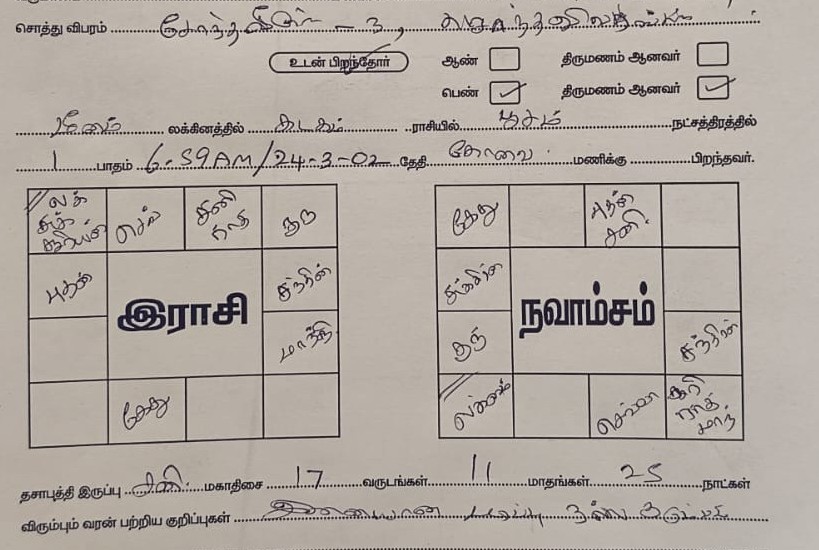 சொத்து விபரம் சொந்த வீடு - 3,
உடன் பிறந்தோர் ஆண் திருமணம் ஆனவர்
பெண் திருமணம் ஆனவர்
மீனம் லக்கினத்தில் கடகம் ராசியில் பூசம் நட்சத்திரத்தில்
1 பாதம் 6-59AM/24-3-02 தேதி கோவை மணிக்கு பிறந்தவர்.
லக் செவ் சனி ராகு குரு
சுக் சூரியன்
புதன் சந்திரன்
இராசி
மாந்தி
கேது
கேது புதன் சனி
சுக்கிரன்
நவாம்சம்
குரு சந்திரன்
லக்னம் செவ்வா சூரி ராகு மாந்
தசாபுத்தி இருப்பு சனி மகாதிசை 17 வருடங்கள் 11 மாதங்கள் 25 நாட்கள்
விரும்பும் வரன் பற்றிய குறிப்புகள் இணையான படிப்பு நல்ல குடும்பம்